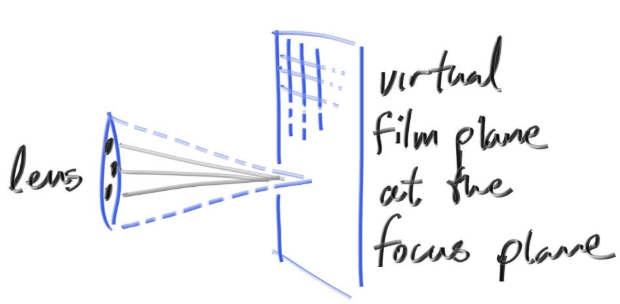 lens
virtual
film plane
at the
focus plane